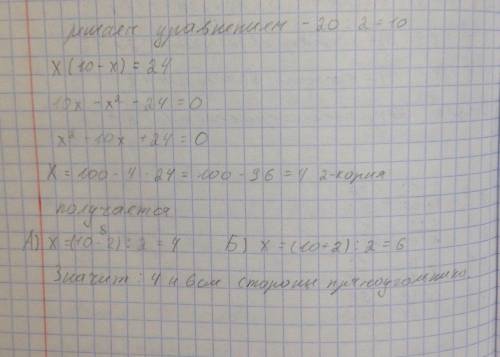 решаем уравнением - 20 : 2 = 10
x (10 - x) = 24
10x - x² - 24 = 0
x² - 10x + 24 = 0
X = 100 - 4 · 24 = 100 - 96 = 4 2-корня
получается
8
А) x = (10 - 2) : 2 = 4 Б) x = (10 + 2) : 2 = 6
Значит : 4 и 6см стороны прямоугольника.